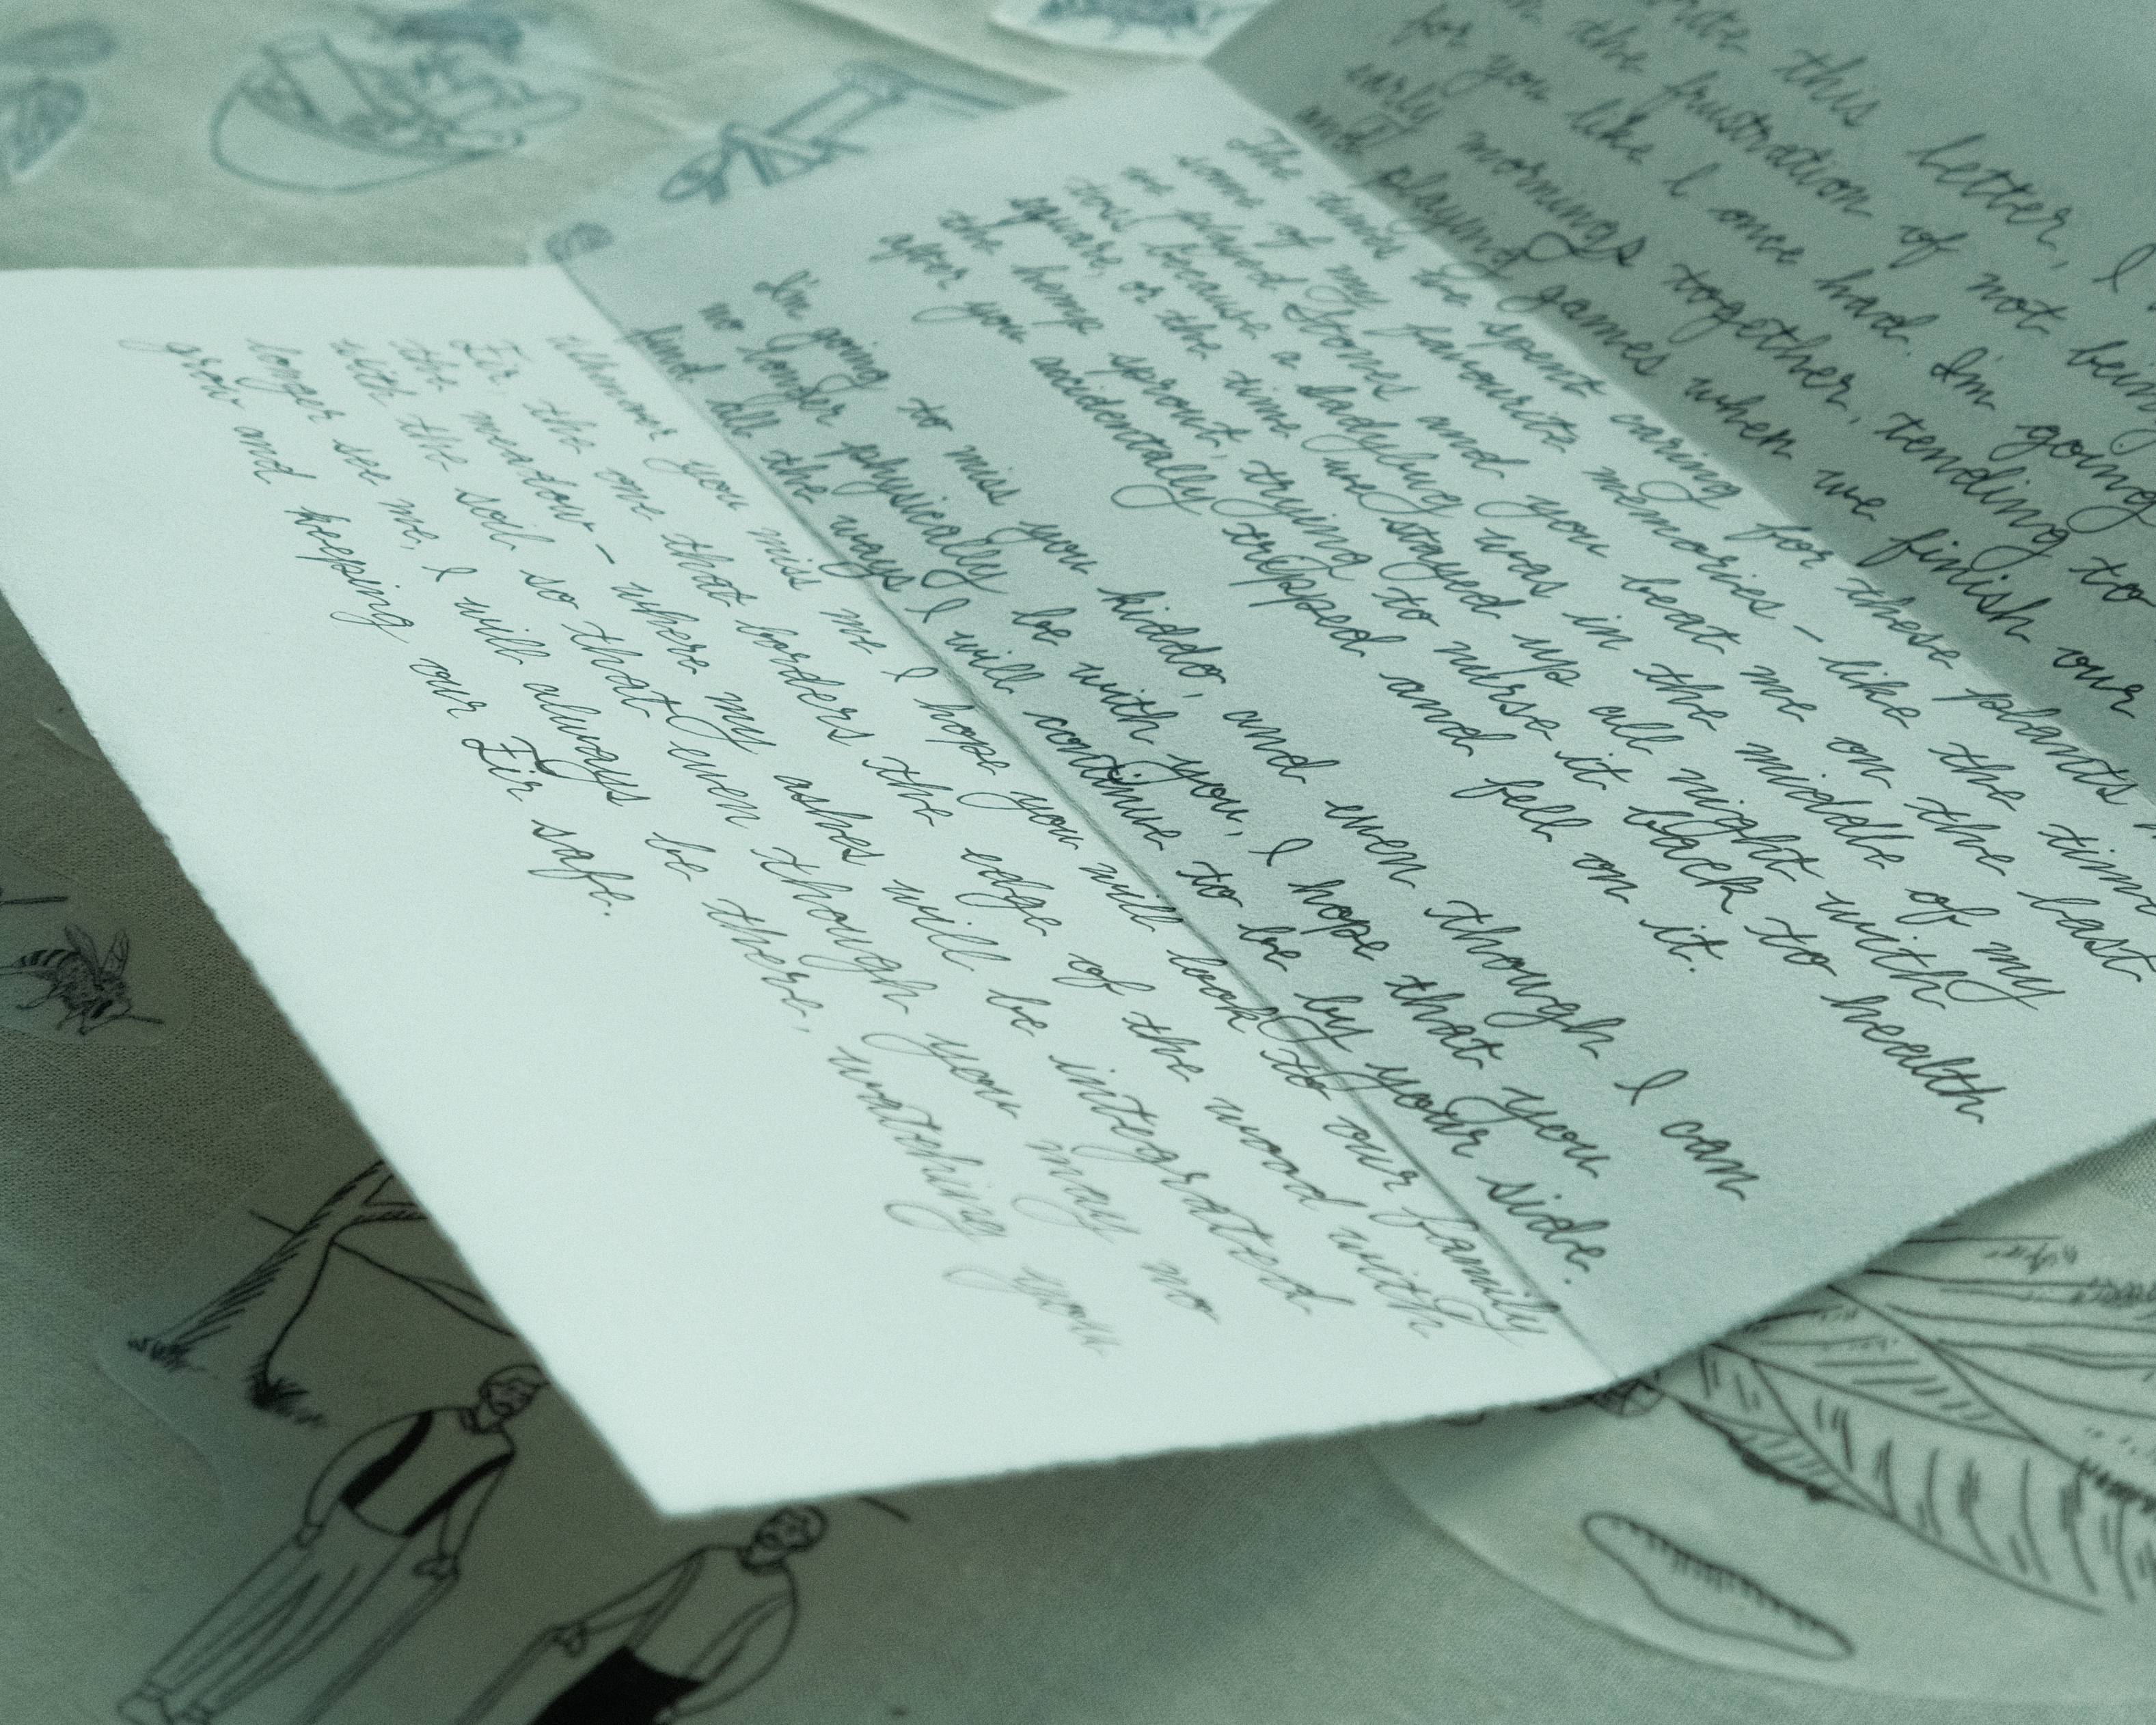 write this letter, I
the frustration of not being
for you like I once had. I'm going
early mornings together, tending to
and playing games when we finish our
The times we spent caring for these plants
some of my favourite memories – like the time
we played Stones and you beat me on the last
toss because a ladybug was in the middle of my
square, or the time we stayed up all night with
the hemp sprout, trying to nurse it back to health
after you accidentally tripped and fell on it.
I'm going to miss you kiddo, and even though I can
no longer physically be with you, I hope that you
find all the ways I will continue to be by your side.
Whenever you miss me I hope you will look to our family
Fir, the one that borders the edge of the wood with
the meadow – where my ashes will be integrated
with the soil so that even though you may no
longer see me, I will always be there, watching you
grow and keeping our Fir safe.